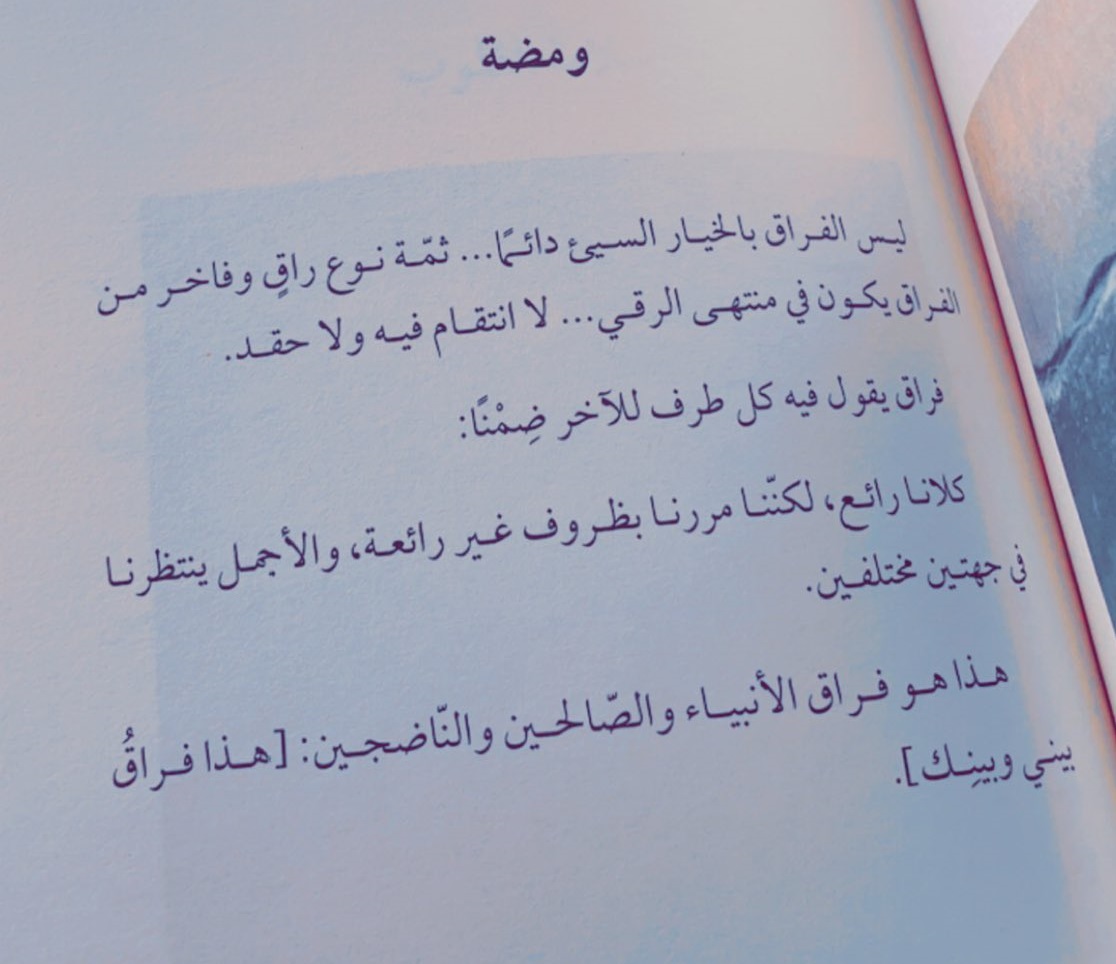 ومضة
ليس الفراق بالخيار السيئ دائمًا... ثمّة نوع راقٍ وفاخر من
الفراق يكون في منتهى الرقي... لا انتقام فيه ولا حقد.
فراق يقول فيه كل طرف للآخر ضِمْنًا:
كلانا رائع، لكنّنا مررنا بظروف غير رائعة، والأجمل ينتظرنا
في جهتين مختلفين.
هذا هو فراق الأنبياء والصّالحين والنّاضجين: [هذا فراقُ
بيني وبينِك].